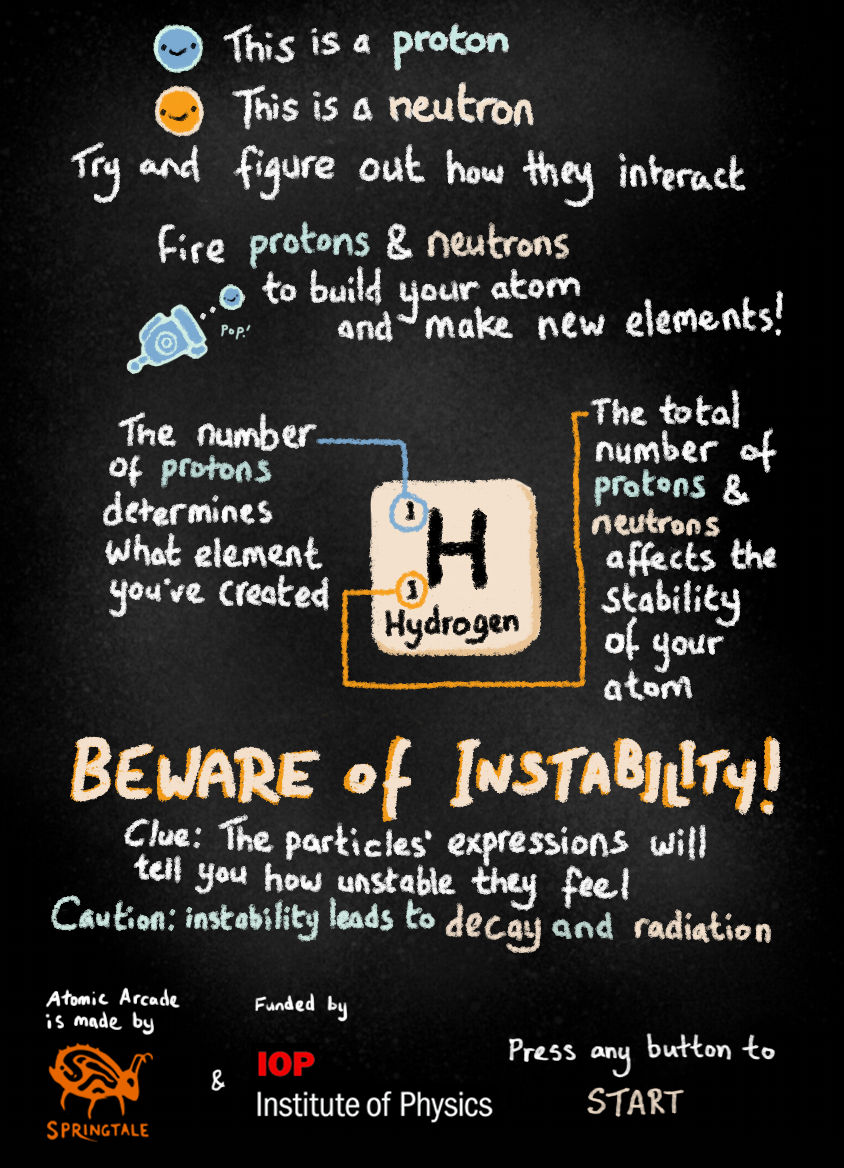 This is a proton
This is a neutron
Try and figure out how they interact
Fire protons & neutrons
to build your atom
POP!
and make new elements!
The number
of protons
determines
what element
you've created
1
H
1
Hydrogen
The total
number of
protons &
neutrons
affects the
stability
of your
atom
BEWARE of INSTABILITY!
Clue: The particles' expressions will
tell you how unstable they feel
Caution: instability leads to decay and radiation
Atomic Arcade
is made by
SPRINGTALE
&
Funded by
IOP
Institute of Physics
Press any button to
START